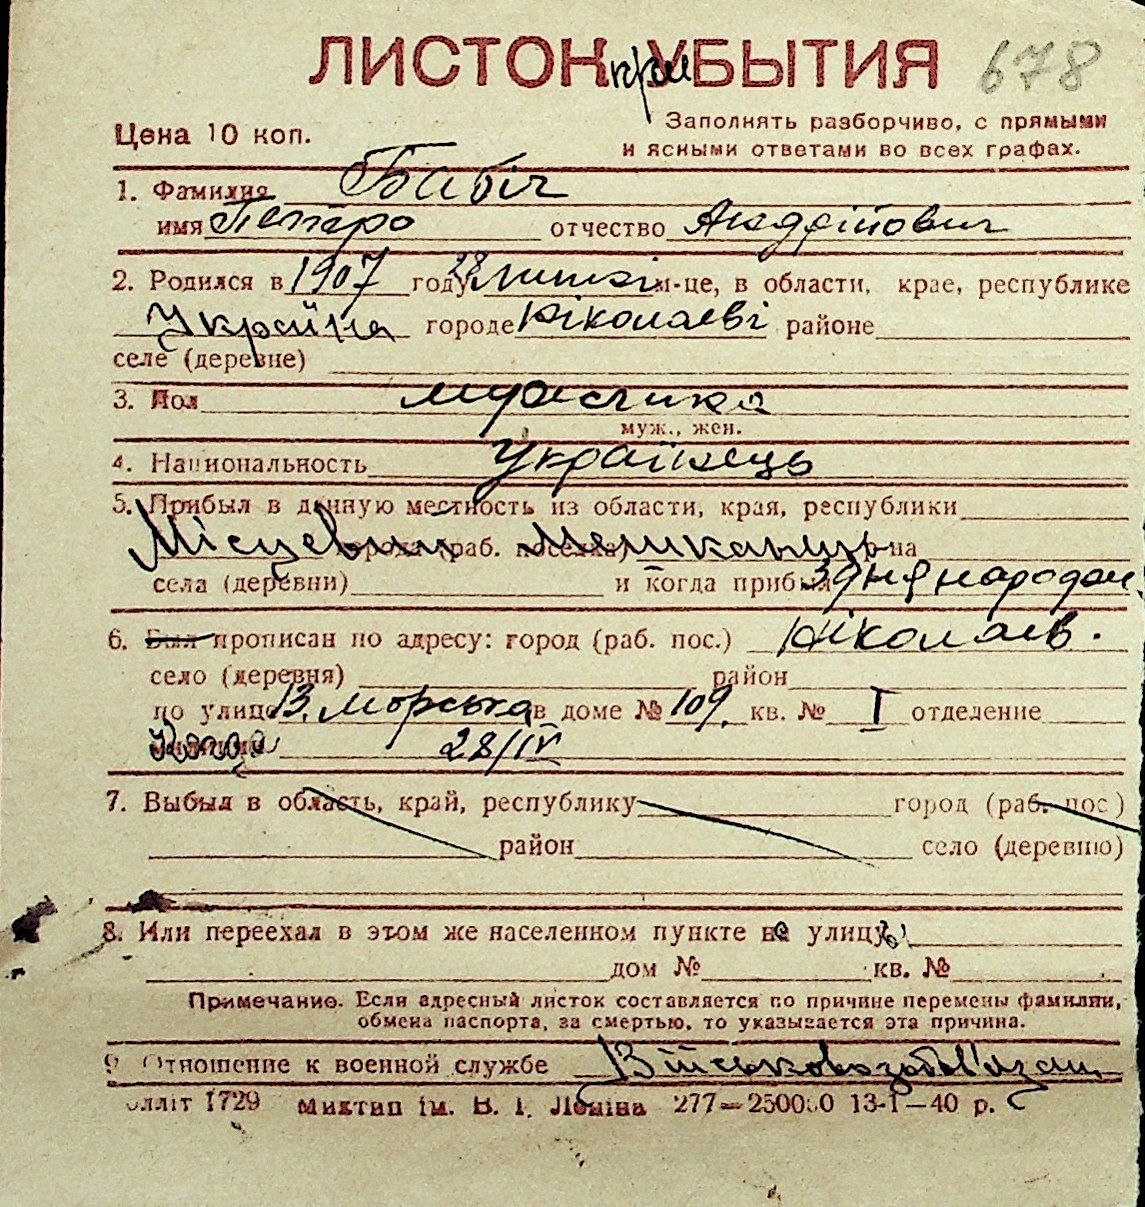 ЛИСТОК при УБЫТИЯ 678
Цена 10 коп.
Заполнять разборчиво, с прямыми
и ясными ответами во всех графах.
1. Фамилия Бабіч
имя Петро отчество Андрійович
2. Родился в 1907 году 28 м-це, в области, крае, республике
Україна городе Ніколаєві районе
селе (деревне)
3. Пол мужчина
муж., жен.
4. Национальность Українець
5. Прибыл в данную местность из области, края, республики
Місцевий города (раб. поселка) мешканець р-на
села (деревни) и когда прибыл З дня народж.
6. Был прописан по адресу: город (раб. пос.) Ніколаєв.
село (деревня) район
по улице В. Морська в доме № 109 кв. № I отделение
милиции 28/IV
7. Выбыл в область, край, республику город (раб. пос)
район село (деревню)
8. Или переехал в этом же населенном пункте на улицу
дом № кв. №
Примечание. Если адресный листок составляется по причине перемены фамилии,
обмена паспорта, за смертью, то указывается эта причина.
9 Отношение к военной службе Військовозобов'язан
лліт 1729 Миктип ім. В. І. Леніна 277—250000 13-І—40 р.